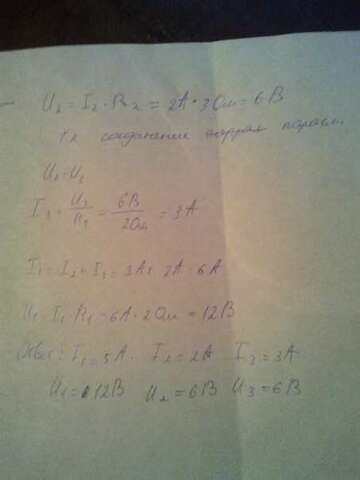 U₂ = I₂ · R₂ = 2А · 3Ом = 6В
Тк соединение паралл.
U₂ = U₃
I₃ = U₂/R₃ = 6В/2Ом = 3А
I₁ = I₂ + I₃ = 3А + 2А = 6А
U₁ = I₁ R₁ = 6А · 2Ом = 12В
Ответ: I₁ = 5А I₂ = 2А I₃ = 3А
U₁ = 12В U₂ = 6В U₃ = 6В